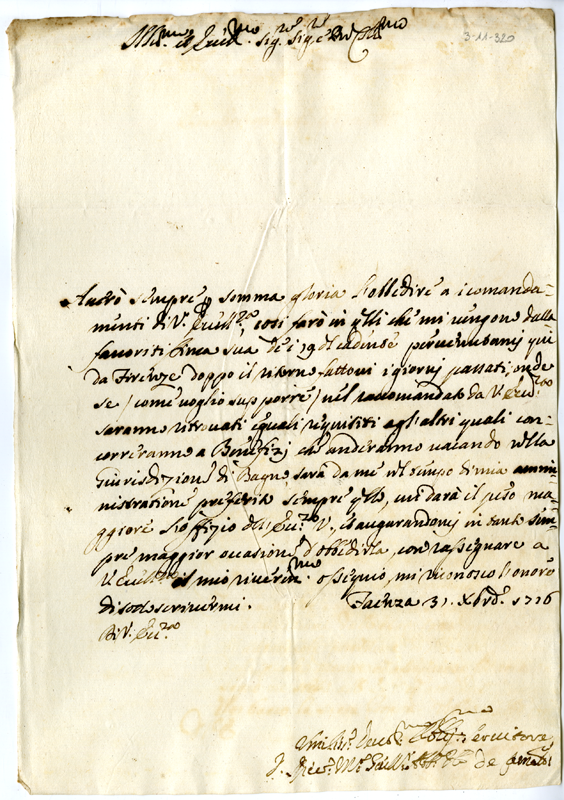 3-11-320
Ill.mo et Ecc.mo Sig.re Sig.re P.ron Col.mo
Avrò sempre p somma gloria l'obbedire a i comanda-
menti di V. Ecell.za, così farò in q.lli che mi vengono dalla
favoritissima sua de i 19 del cadente pervenutami qui
da Firenze doppo il ritorno fattovi i giorni passati, onde
se (come voglio supporre) nel raccomandato da V. Ecc.za
saranno ritrovati eguali requisiti agl'altri quali con-
correranno a Benefizj che anderanno vacando nella
Giurisdizione di Bagno, sarà da me nel tempo di mia ammi-
nistrazione preferito sempre q.llo, cui darà il peso ma-
ggiore l'offizio dell'Ecc.za V., et augurandomi in tanto sem-
pre maggior occasione d'obbedirla, con rassegnare a
V. Ecell.za il mio riverent.mo ossequio, mi riconosco l'onore
di sottoscrivermi. Faenza 31. Xbre. 1716
Di V. Ecc.za
Umiliss. Devot.mo Oblig.mo Servitore